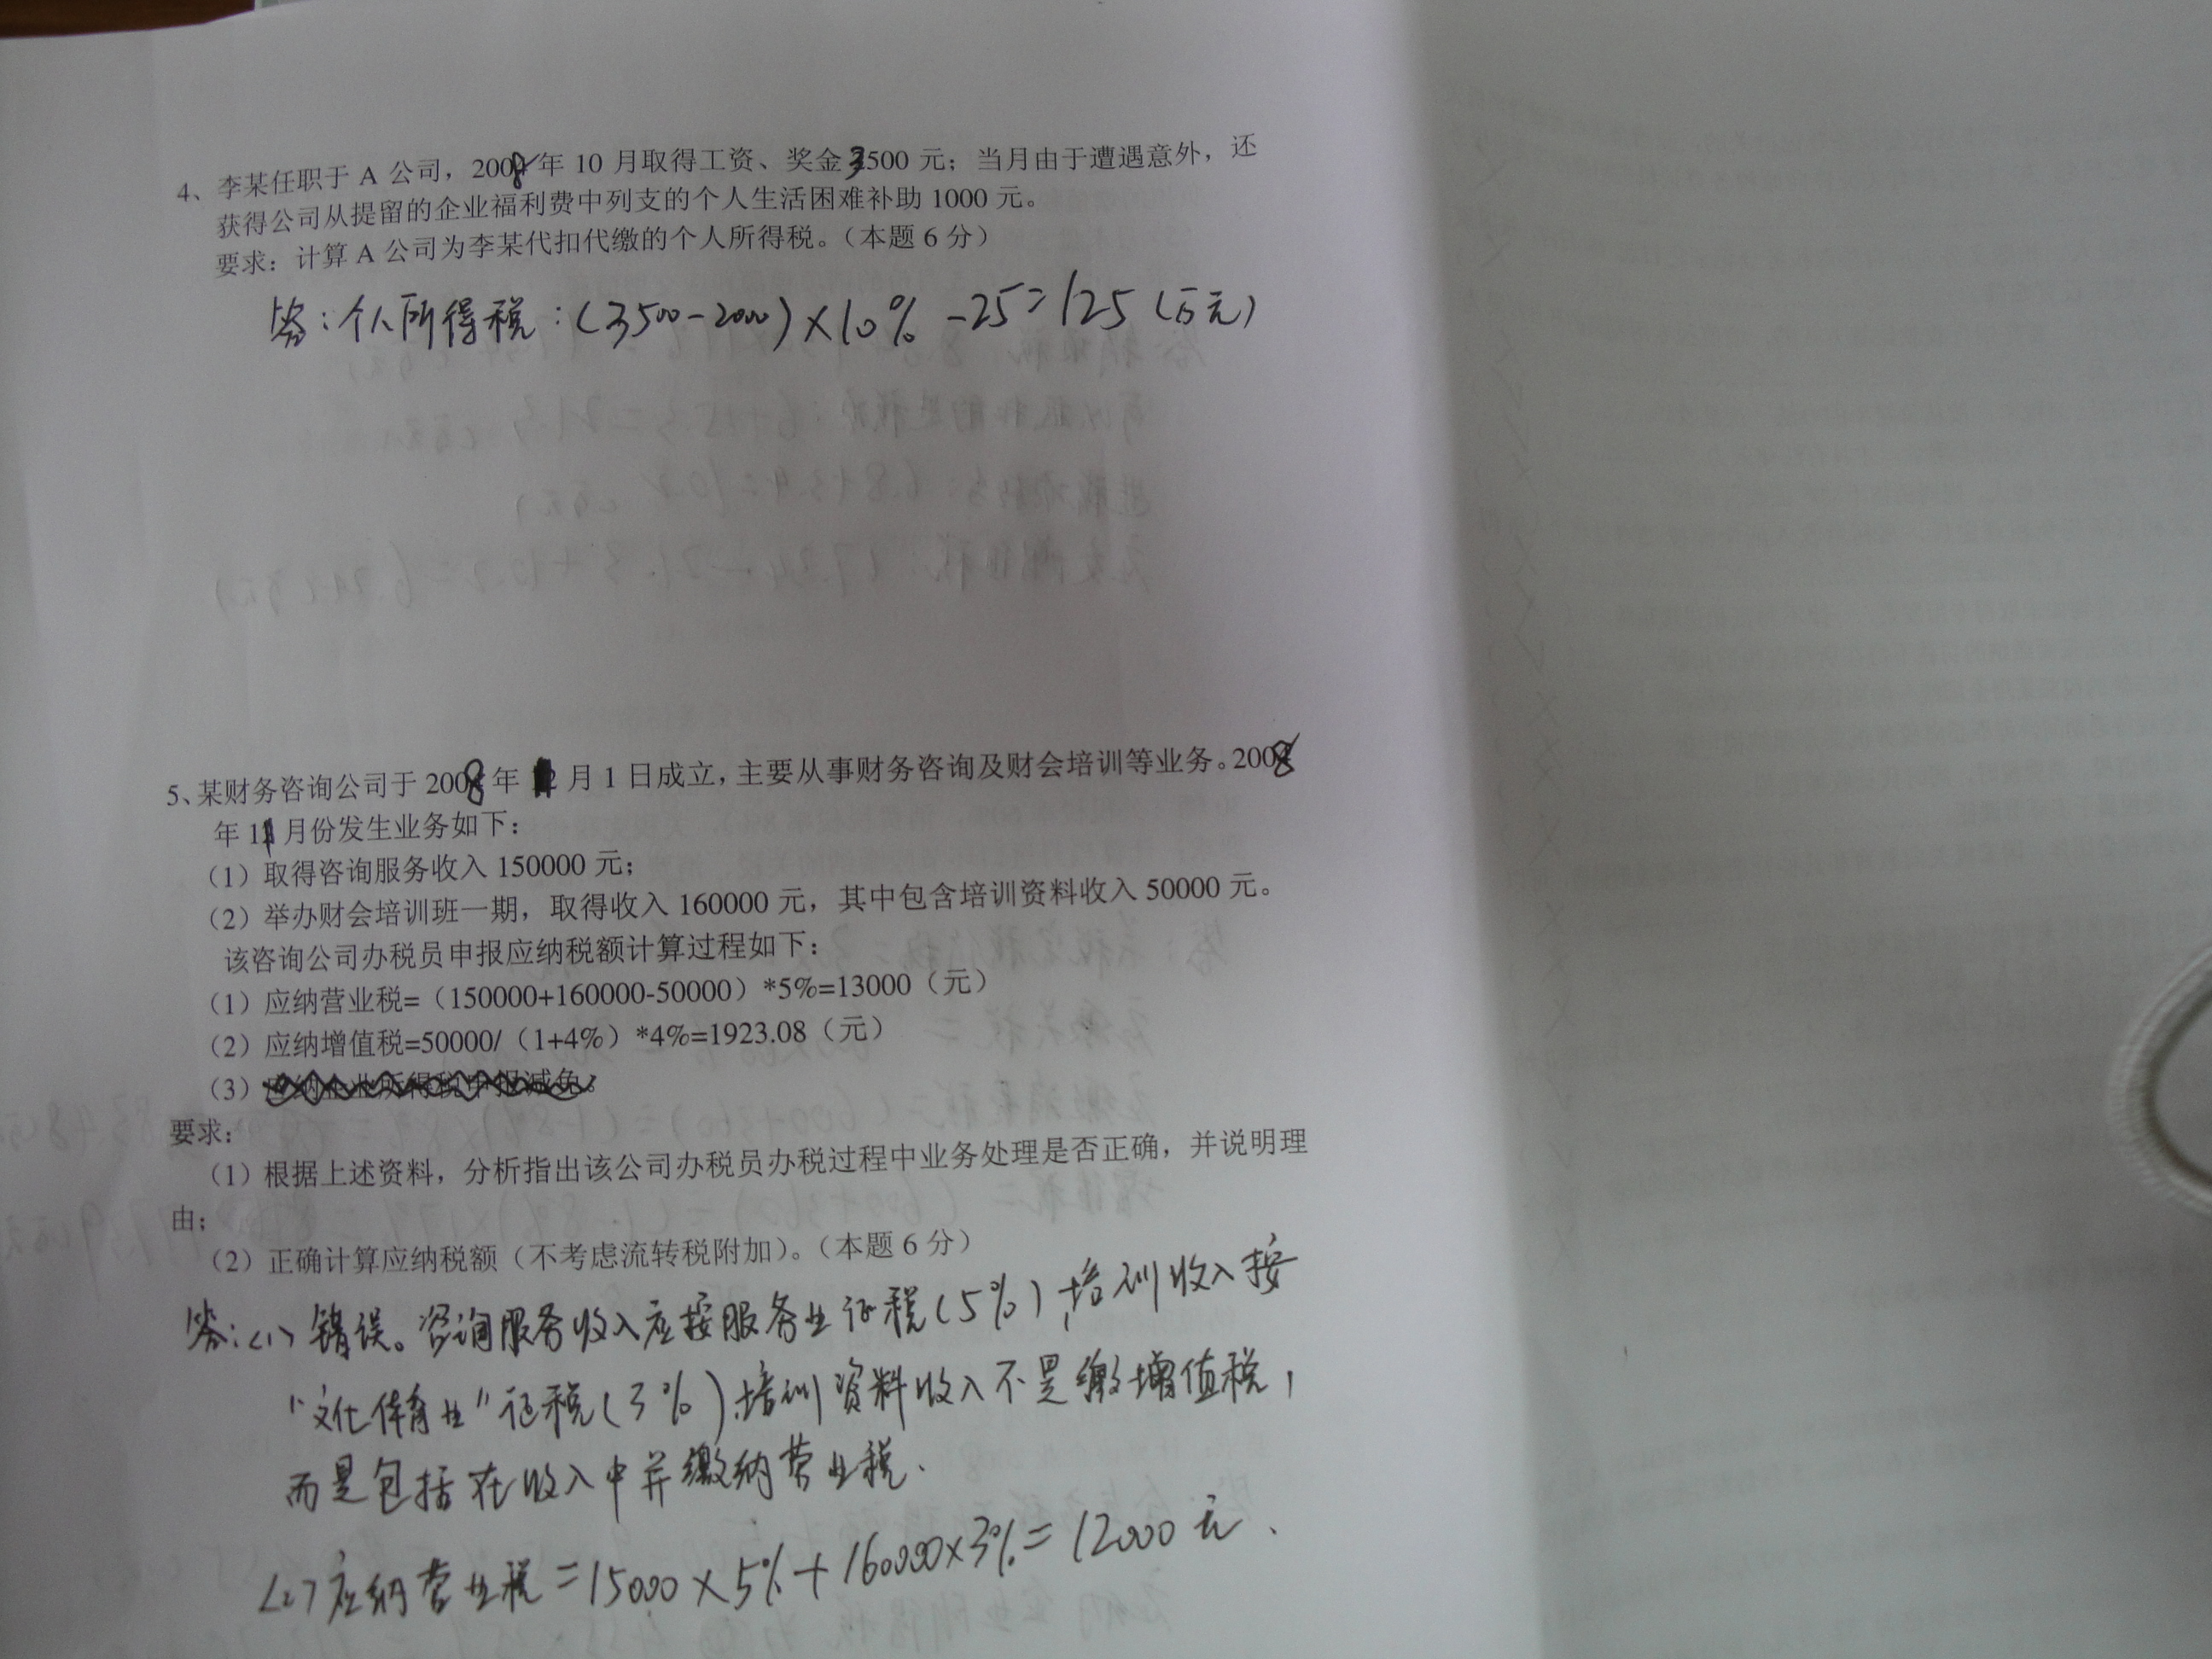 4、李某任职于 A 公司，2008年 10 月取得工资、奖金3500 元；当月由于遭遇意外，还
获得公司从提留的企业福利费中列支的个人生活困难补助 1000 元。
要求：计算 A 公司为李某代扣代缴的个人所得税。（本题 6 分）
答：个人所得税：(3500-2000)×10% -25=125 (万元)
5、某财务咨询公司于 2008 年 月 1 日成立，主要从事财务咨询及财会培训等业务。2008
年 11 月份发生业务如下：
（1）取得咨询服务收入 150000 元；
（2）举办财会培训班一期，取得收入 160000 元，其中包含培训资料收入 50000 元。
该咨询公司办税员申报应纳税额计算过程如下：
（1）应纳营业税=（150000+160000-50000）*5%=13000（元）
（2）应纳增值税=50000/（1+4%）*4%=1923.08（元）
（3）应纳企业所得税申报减免。
要求：
（1）根据上述资料，分析指出该公司办税员办税过程中业务处理是否正确，并说明理
由；
（2）正确计算应纳税额（不考虑流转税附加）。（本题 6 分）
答：(1) 错误。咨询服务收入应按服务业征税(5%)，培训收入按
"文化体育业"征税(3%)，培训资料收入不是缴增值税，
而是包括在收入中并缴纳营业税.
(2)应纳营业税=15000×5%+160000×3%=12000 元、